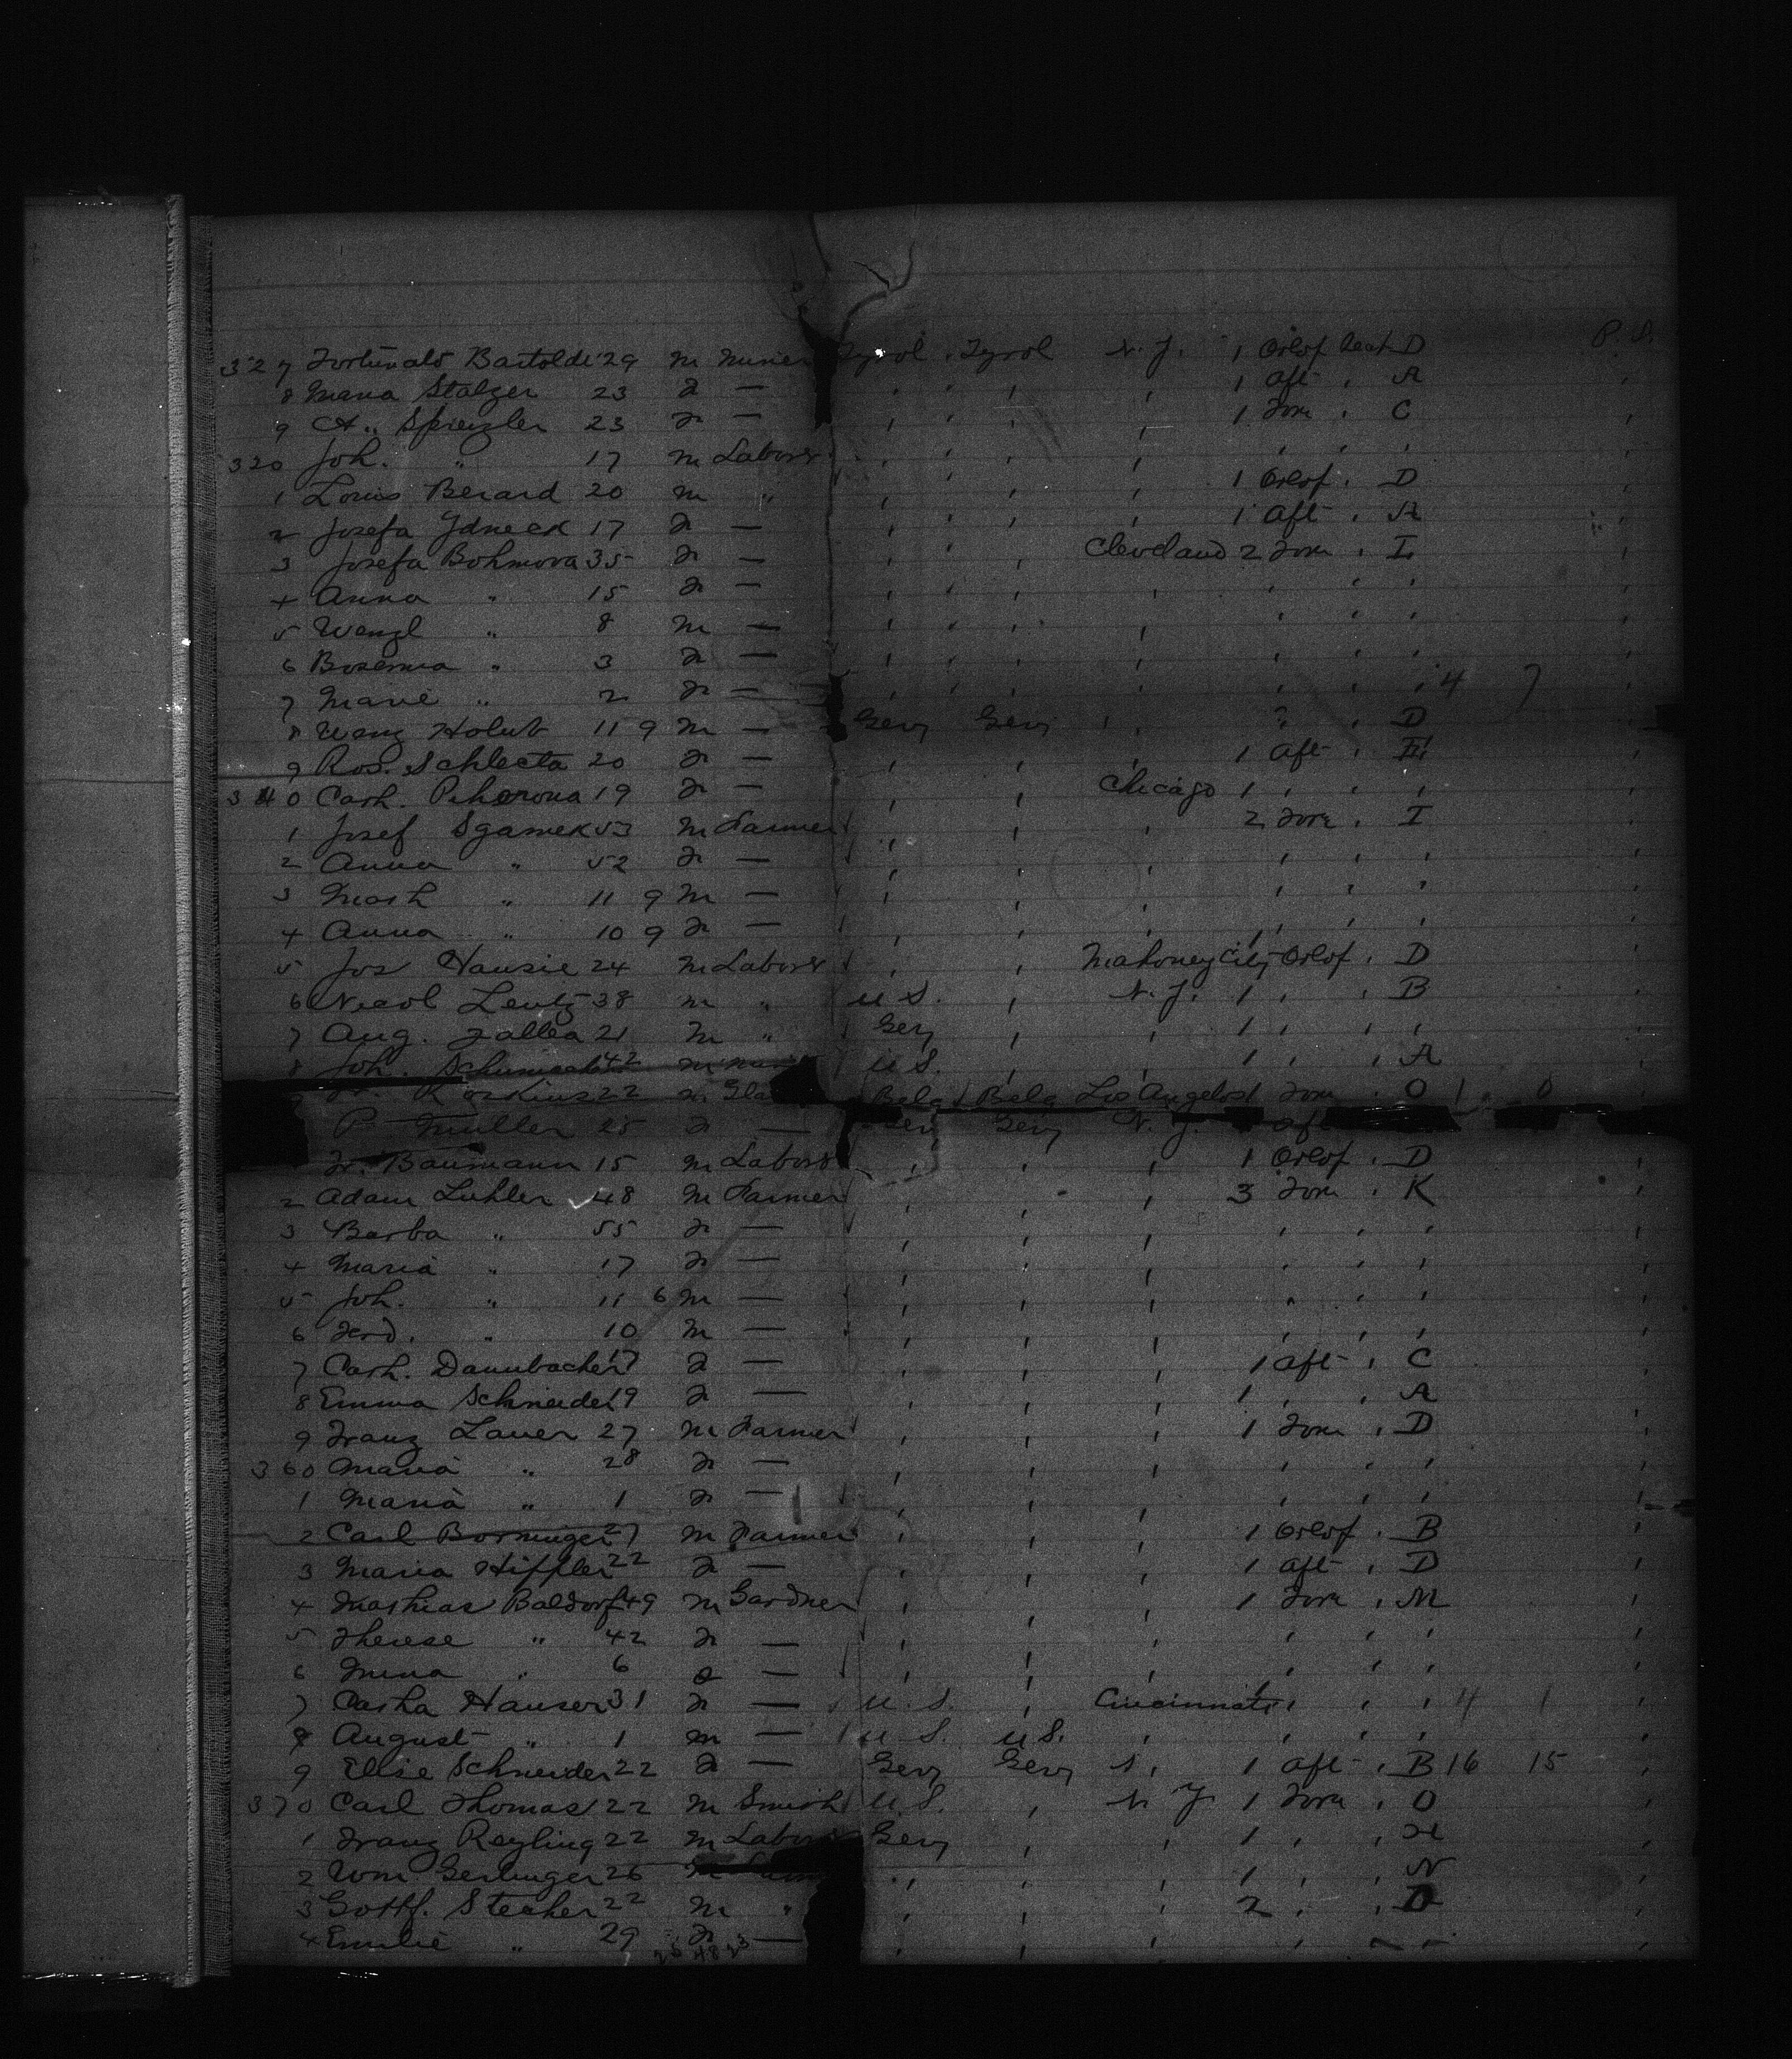 327 Fortunato Bartolde 29 m Miner Tyrol , Tyrol N. Y. 1 Orlof Deck D P. S.
8 Maria Stalzer 23 f — , , , , 1 Aft , A ,
9 A. " Sprenzler 23 f — , , , , 1 Forw , C ,
320 Joh. " 17 m Laborer , , , , , , , ,
1 Louis Berard 20 m " , , , , 1 Orlof , D ,
2 Josefa 17 f — , , , , 1 Aft , A
3 Josefa Bohmova 35 f — , , , Cleveland 2 Forw , I ,
4 Anna " 15 f — , , , , , , , ,
5 Wenzl " 8 m — , , , , , , , ,
6 Bosenna " 3 f — , , , , , , , ,
7 Marie " 2 f — , , , , , , , 4 7 ,
8 Wenz Holub 11 9 m — Gery Gery , , , D
9 Ros. Schlecta 20 f — , , , 1 Aft , ,
340 Cath. 19 f — , , Chicago 1 , , , ,
1 Josef Sgamek 53 m Farmer , , , 2 Forw , I ,
2 Anna " 52 f — , , , , , , ,
3 Math " 11 9 m — , , , , , , ,
4 Anna " 10 9 f — , , , , , , ,
5 Jos Hausie 24 m Laborer , , Mahoney City 1 Orlof , D ,
6 Nicol Lentz 38 m " U S. , N. Y. 1 , , B ,
7 Aug. 21 m " Gery , , 1 , , , ,
8 Joh. 42 m U S. , , 1 , , A ,
22 m Belg Belg Los Angelos 1 Forw , O 1 0
P Muller 25 f — Gery Gery N. Y. 1 Aft
Fr. Baumann 15 m Laborer , , , 1 Orlof , D ,
2 Adam Luhler 48 m Farmer , , , 3 Forw , K ,
3 Barba " 55 f — , , , , , , ,
4 Maria " 17 f — , , , , , , ,
5 Joh. " 11 6 m — , , , , , , ,
6 Ferd. " 10 m — , , , , , , ,
7 Cath. Dannbacher 17 f — , , , 1 Aft , C ,
8 Emma Schneider 19 f — , , , 1 , , A ,
9 Franz Lauer 27 m Farmer , , , 1 Forw , D ,
360 Maria " 28 f — , , , , , , ,
1 Maria " 1 f — , , , , , , ,
2 Carl Borninger 27 m Farmer , , , 1 Orlof , B ,
3 Maria Hippler 22 f — , , , 1 Aft , D ,
4 Mathias Baldorf 49 m Gardner , , , 1 Forw , M ,
5 Therese " 42 f — , , , , , , ,
6 Mina " 6 f — , , , , , , ,
7 Catha Hauser 31 f — U. S. , Cincinnati , , , 4 1 ,
8 August " 1 m — U S. U S. , , , , ,
9 Elise Schneider 22 f — Gery Gery , 1 Aft , B 16 15 ,
370 Carl Thomas 22 m Smith U. S. , N Y 1 Forw , O ,
1 Franz Reyling 22 m Laborer Gery , , 1 , , H ,
2 Wm Gerlinger 26 m , , , 1 , , N ,
3 Gottf. Stecher 22 m " , , , 2 , , D ,
4 Emilie " 29 f — , , , , , , ,